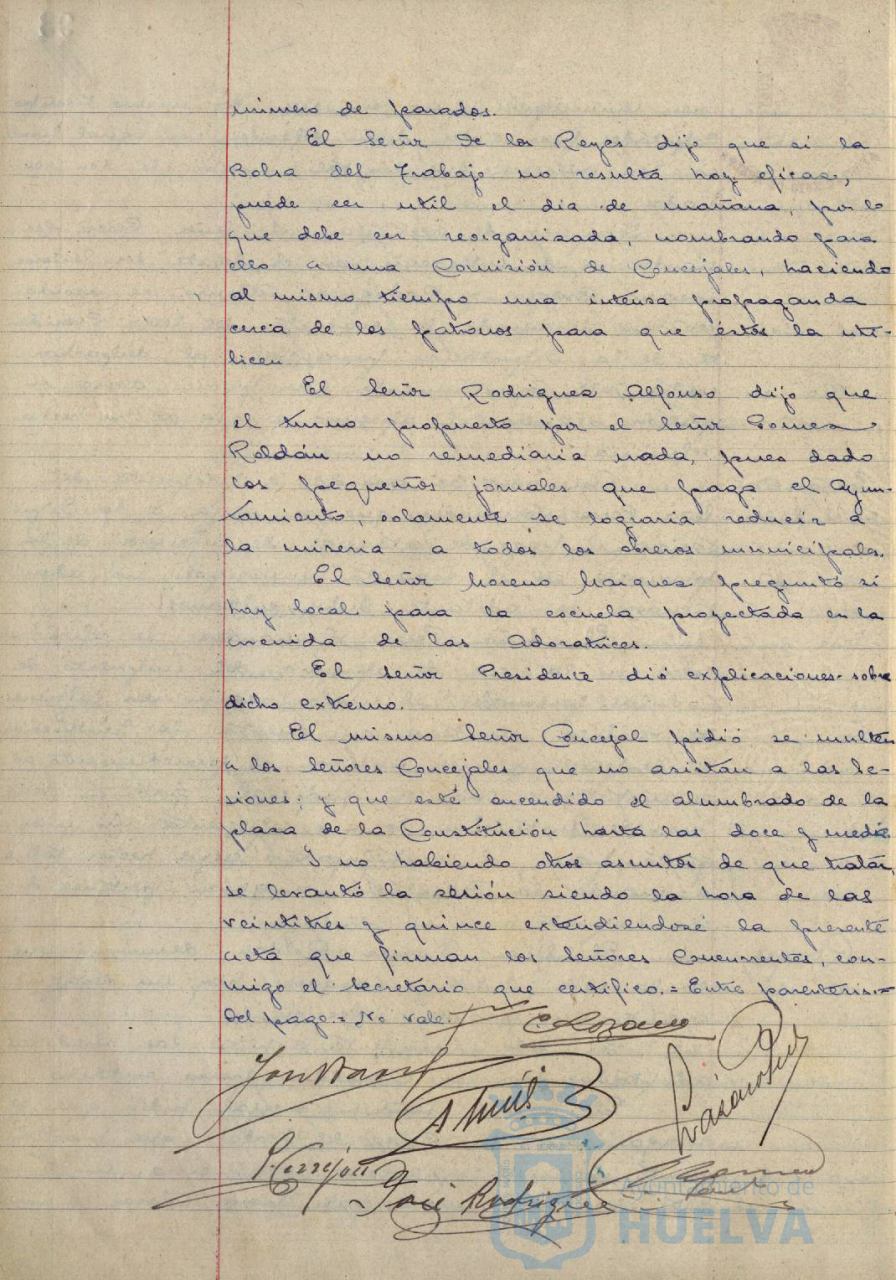 número de parados.
El Señor De los Reyes dijo que si la
Bolsa del Trabajo no resulta hoy eficaz,
puede ser util el dia de mañana, por lo
que debe ser reorganizada, nombrando para
ello a una Comisión de Concejales, haciendo
al mismo tiempo una intensa propaganda
cerca de los patronos para que éstos la uti-
licen
El Señor Rodriguez Alfonso dijo que
el turno propuesto por el Señor Gomez
Roldán no remediaria nada, pues dado
los pequeños jornales que paga el Ayun-
tamiento, solamente se lograria reducir a
la miseria a todos los obreros municipales.
El Señor Moreno Marquez preguntó si
hay local para la escuela proyectada en la
avenida de las Adoratrices.
El Señor Presidente dió explicaciones sobre
dicho extremo.
El mismo Señor Concejal pidió se multen
a los Señores Concejales que no asistan a las se-
siones; y que esté encendido el alumbrado de la
plaza de la Constitución hasta las doce y media
Y no habiendo otros asuntos de que tratar,
se levantó la sesión siendo la hora de las
veintitres y quince extendiendose la presente
acta que firman los Señores Concurrentes, con-
migo el Secretario que certifico.= Entre parentesis=
del pago.= No vale.
C. Lozano
José Rodriguez
Ayuntamiento de
HUELVA